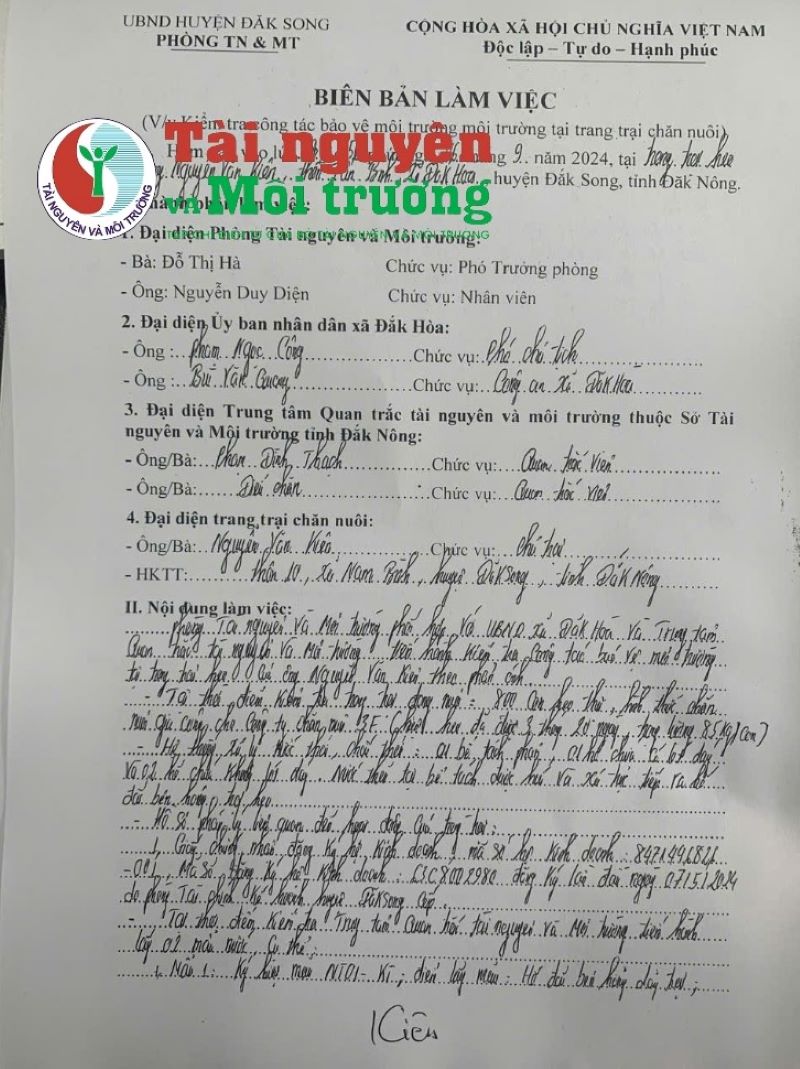 UBND HUYỆN ĐẮK SONG
PHÒNG TN & MT
CỘNG HÒA XÃ HỘI CHỦ NGHĨA VIỆT NAM
Độc lập – Tự do – Hạnh phúc
BIÊN BẢN LÀM VIỆC
(V/v Kiểm tra công tác bảo vệ môi trường môi trường tại trang trại chăn nuôi)
9. năm 2024, tại trang trại heo
Nguyễn Văn Kiên, thôn Tân Bình xã Đắk Hòa, huyện Đắk Song, tỉnh Đăk Nông.
Tài nguyên
và Môi trường
TÀI NGUYÊN VÀ MÔI TRƯỜNG
thành phần làm việc:
1. Đại diện Phòng Tài nguyên và Môi trường:
- Bà: Đỗ Thị Hà Chức vụ: Phó Trưởng phòng
- Ông: Nguyễn Duy Diện Chức vụ: Nhân viên
2. Đại diện Ủy ban nhân dân xã Đắk Hòa:
- Ông: Phạm Ngọc Công Chức vụ: Phó chủ tịch
- Ông: Bùi Văn Cương Chức vụ: Công an xã Đắk Hòa
3. Đại diện Trung tâm Quan trắc tài nguyên và môi trường thuộc Sở Tài
nguyên và Môi trường tỉnh Đắk Nông:
- Ông/Bà: Phan Đình Thạch Chức vụ: Quan trắc viên
- Ông/Bà: Chức vụ: Quan trắc viên
4. Đại diện trang trại chăn nuôi:
- Ông/Bà: Nguyễn Văn Kiên Chức vụ: chủ trại
- HKTT: thôn 10, xã Nam Bình, huyện Đắk Song, tỉnh Đắk Nông
II. Nội dung làm việc:
Phòng Tài nguyên và Môi trường phối hợp với UBND xã Đắk Hòa và Trung tâm
Quan trắc tài nguyên và Môi trường tiến hành kiểm tra công tác bảo vệ môi trường
tại trang trại heo của ông Nguyễn Văn Kiên theo phản ánh.
- Tại thời điểm kiểm tra trang trại đang nuôi: 800 con heo thịt, hình thức chăn
nuôi gia công cho Công ty chăn nuôi heo đã được 3 tháng 20 ngày, trọng lượng 85kg/con)
- Hệ thống xử lý nước thải, chất thải: 01 bể tách phân, 01 hồ chứa có lót đáy
và 02 hồ chứa không lót đáy. Nước thải từ bể tách được tiếp ra hố
đất bên hông trại heo
- Hồ sơ pháp lý liên quan đến hoạt động của trang trại:
1, Giấy chứng nhận đăng ký hộ kinh doanh mã số hộ kinh doanh: 8471442821
-001, Mã số đăng ký hộ kinh doanh: đăng ký lần đầu ngày 07/5/2024
do phòng Tài chính Kế hoạch huyện Đắk Song cấp.
- Tại thời điểm kiểm tra Trung tâm Quan trắc tài nguyên và Môi trường tiến hành
lấy 02 mẫu nước, cụ thể:
1, Mẫu 1: Ký hiệu mẫu NT01-Ki; điểm lấy mẫu: Hố đất bên hông dãy trại;
Kiên